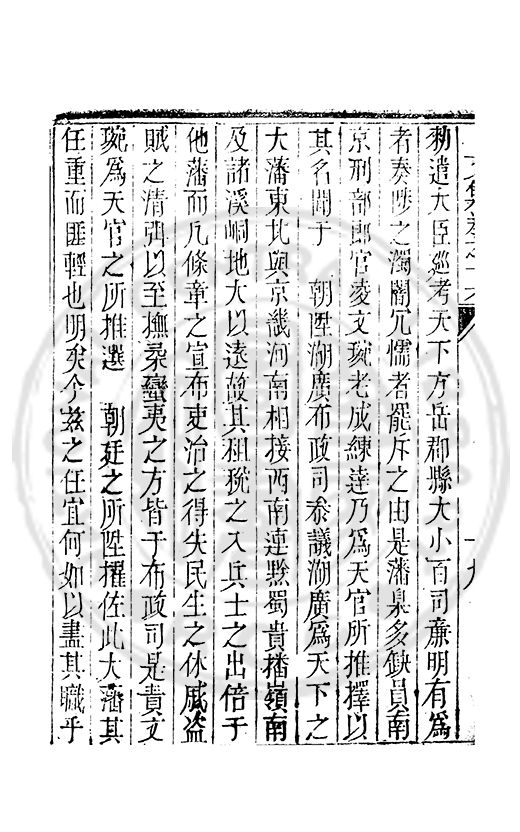 勑遣大臣巡考天下方岳郡縣大小百司廉明有爲
者奏陟之濁闇冗懦者罷斥之由是藩臬多缺員南
京刑部郎官凌文琬老成練達乃爲天官所推擇以
其名聞于　朝陞湖廣布政司叅議湖廣爲天下之
大藩東北與京畿河南相接西南連黔蜀貴播嶺南
及諸溪峒地大以遠故其租稅之入兵士之出倍于
他藩而凡條章之宣布吏治之得失民生之休戚盗
賊之清弭以至撫綏蠻夷之方皆于布政司是責文
琬爲天官之所推選　朝廷之所陞擢佐此大藩其
任重而匪輕也明矣今兹之任宜何如以盡其職乎